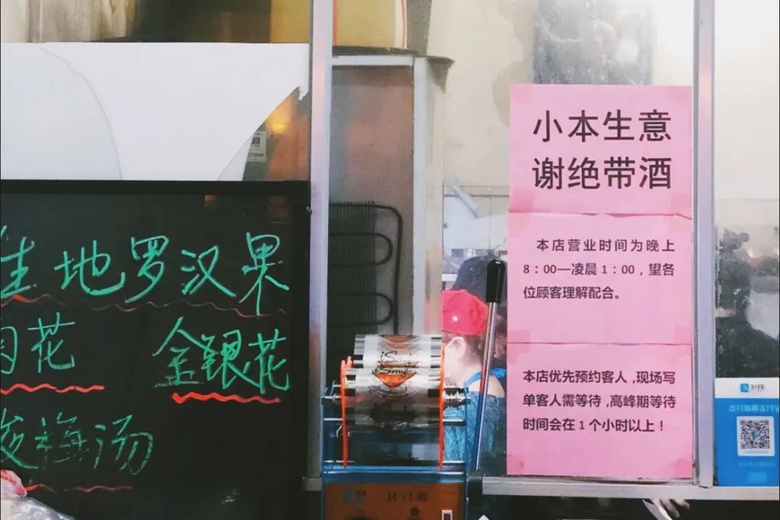 小本生意
谢绝带酒
本店营业时间为晚上
8：00—凌晨1：00，望各
位顾客理解配合。
本店优先预约客人,现场写
单客人需等待,高峰期等待
时间会在1个小时以上！
生地罗汉果
花 金银花
酸梅汤